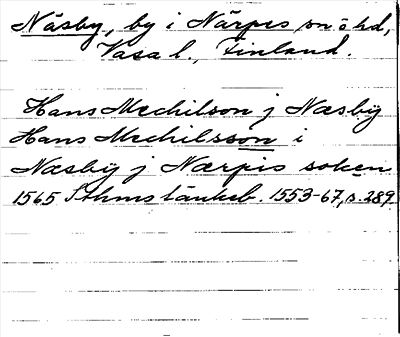 Näsby, by i Närpes sn o hd,
Vasa l., Finland.
Hans Mechilson j Næsby
Hans Mechilsson i
Næsbÿ j Nærpis soken
1565 Sthms tänkeb. 1553-67, s. 289